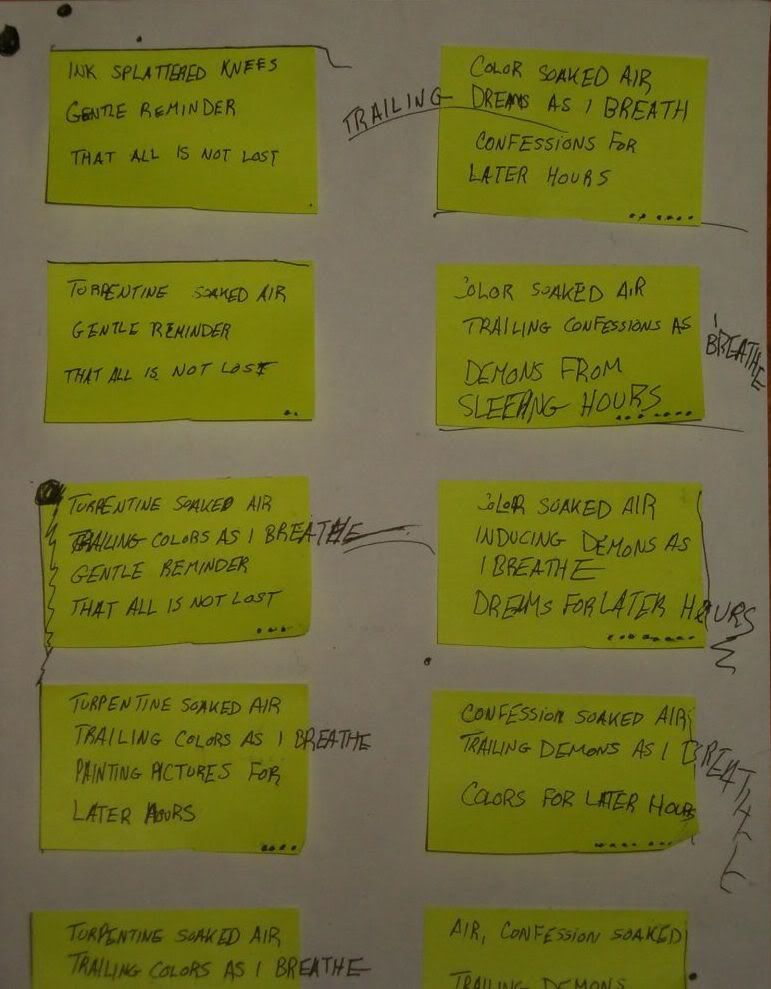 INK SPLATTERED KNEES
GENTLE REMINDER
THAT ALL IS NOT LOST
TURPENTINE SOAKED AIR
GENTLE REMINDER
THAT ALL IS NOT LOST
TURPENTINE SOAKED AIR
TRAILING COLORS AS I BREATHE
GENTLE REMINDER
THAT ALL IS NOT LOST
TURPENTINE SOAKED AIR
TRAILING COLORS AS I BREATHE
PAINTING PICTURES FOR
LATER HOURS
TURPENTINE SOAKED AIR
TRAILING COLORS AS I BREATHE
COLOR SOAKED AIR
TRAILING DREAMS AS I BREATH
CONFESSIONS FOR
LATER HOURS
COLOR SOAKED AIR
TRAILING CONFESSIONS AS I BREATHE
DEMONS FROM
SLEEPING HOURS
COLOR SOAKED AIR
INDUCING DEMONS AS
I BREATHE
DREAMS FOR LATER HOURS
CONFESSION SOAKED AIR
TRAILING DEMONS AS I BREATHE
COLORS FOR LATER HOURS
AIR, CONFESSION SOAKED
TRAILING DEMONS